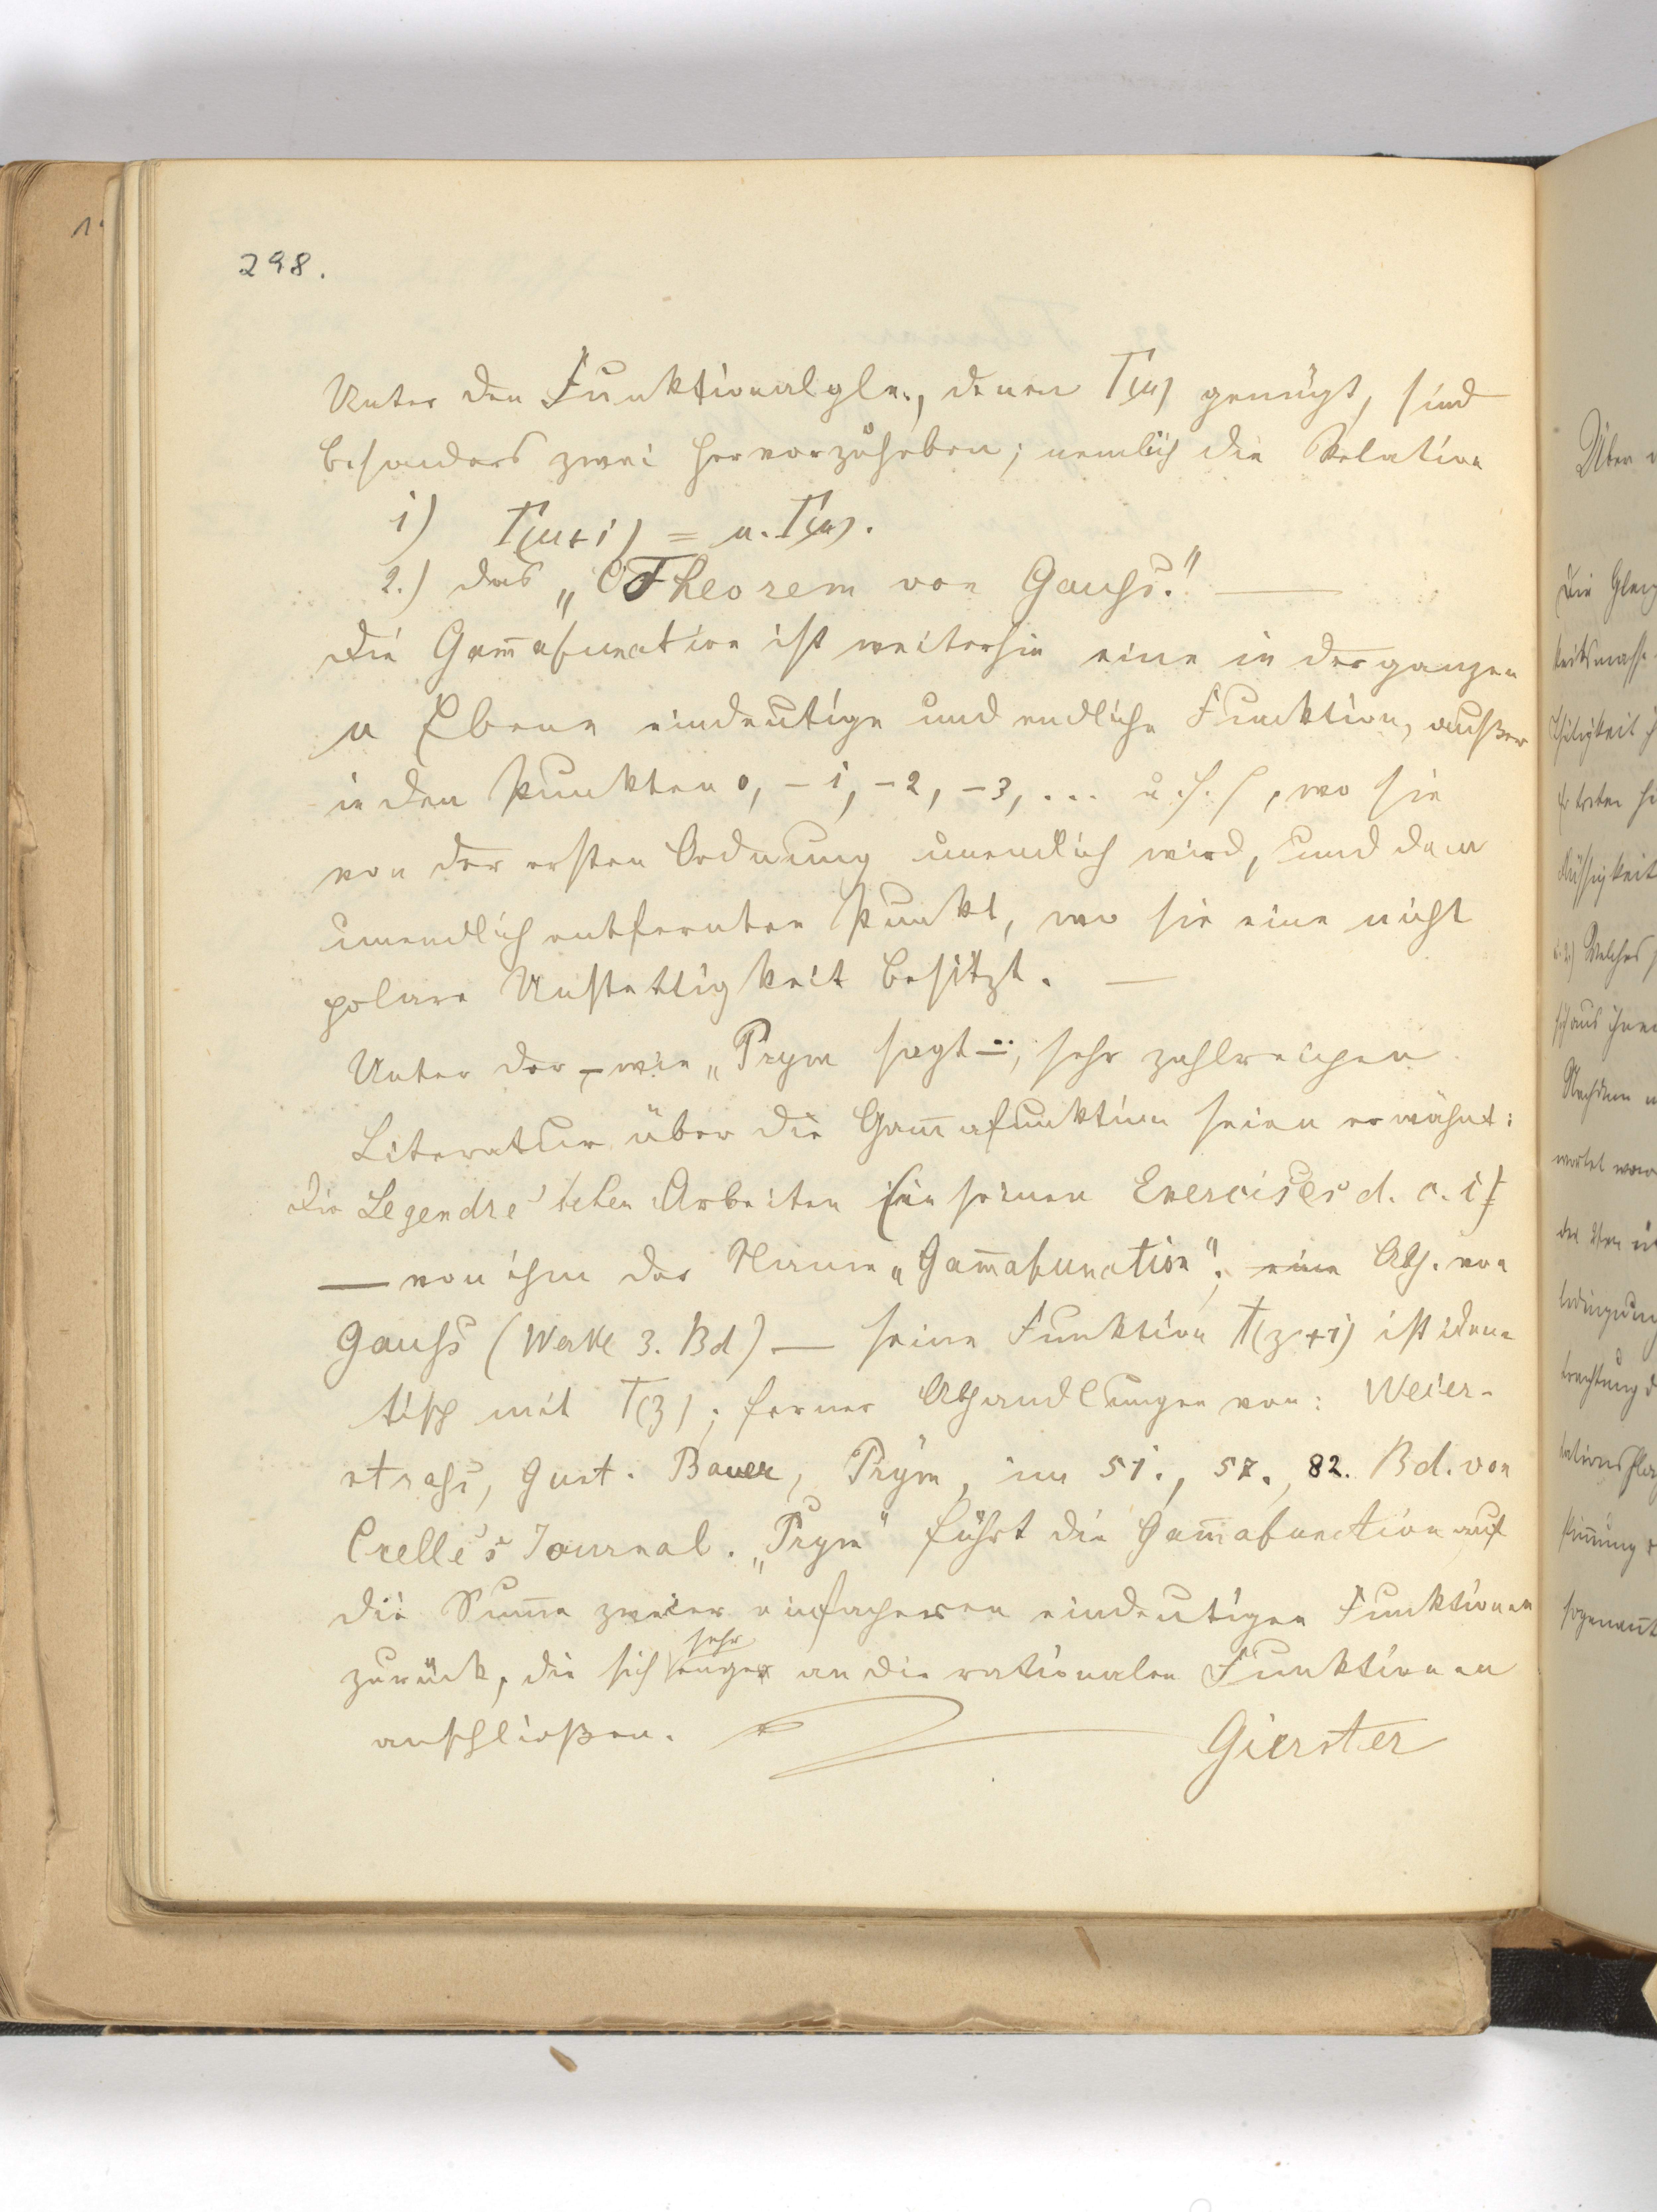 298.
Unter den Funktionalgln., denen Γ(u) genügt, sind
besonders zwei hervorzuheben; nemlich die Relation
1) Γ(u+1) = u. Γ(u).
2.) das „Theorem von Gauss."
Die Gam̄afunction ist weiterhin eine in der ganzen
u Ebene eindeutige und endliche Funktion, außer
in den Punkten 0, -1, -2, -3, ... u. s. f., wo sie
von der ersten Ordnung unendlich wird, und dem
unendlich entfernten Punkt, wo sie eine nicht
polare Unstettigkeit besitzt. —
Unter der, – wie „Prym sagt –", sehr zahlreichen
Literatur über die Gam̄afunktion seien erwähnt:
die Legendre'schen Arbeiten (in seinen Exercises d. c. i)
— von ihm der Name „Gam̄afunction"; eine Abh. von
Gauss (Werke 3. Bd) — seine Funktion Π(z+1) ist iden-
tisch mit Γ(z); ferner Abhandlungen von: Weier-
strass, Gust. Bauer, Prym, im 51., 57., 82. Bd. von
Crelle's Journal. „Prym" führt die Gam̄afunction auf
die Sum̄e zweier einfacheren eindeutigen Funktionen
zurück, die sich sehr enge an die rationalen Funktionen
anschließen.
Gierster
Über
Die
keitsmasse
2.) Welches
sich aus ihnen
Nachdem